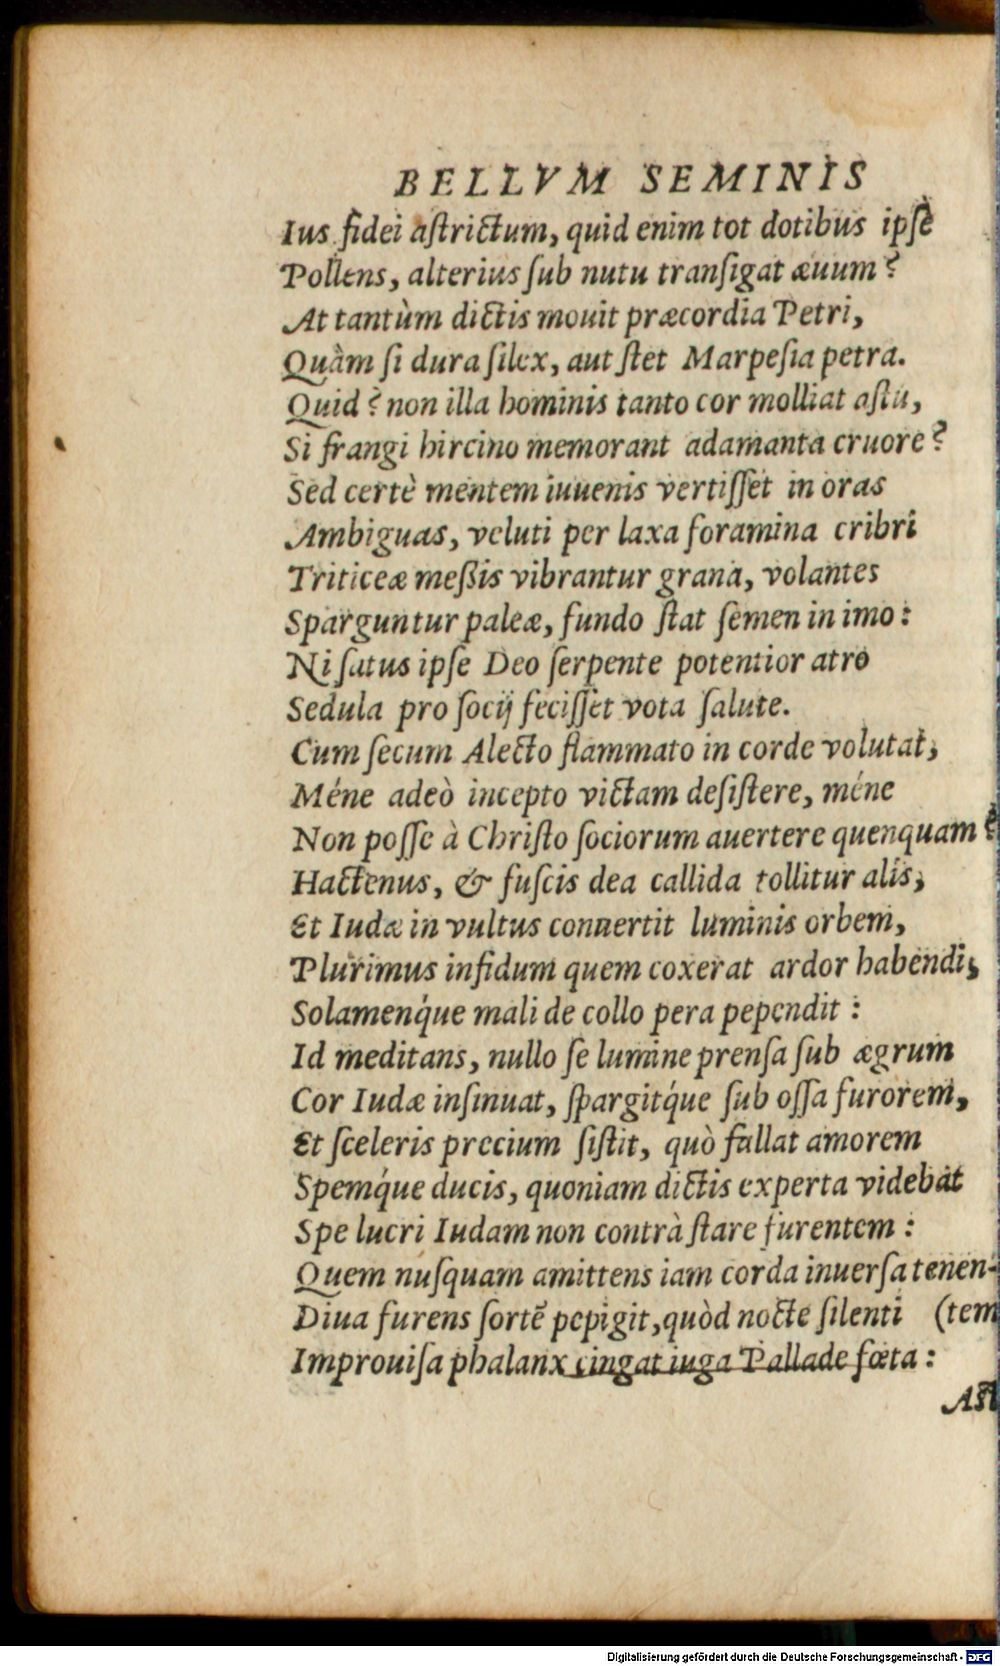 BELLVM SEMINIS
Ius fidei aſtrictum, quid enim tot dotibus ipſe
Pollens, alterius ſub nutu tranſigat æuum?
At tantùm dictis mouit præcordia Petri,
Quàm ſi dura ſilex, aut ſtet Marpeſia petra.
Quid? non illa hominis tanto cor molliat aſtu,
Si frangi hircino memorant adamanta cruore?
Sed certè mentem iuuenis vertiſſet in oras
Ambiguas, veluti per laxa foramina cribri
Triticeæ meßis vibrantur grana, volantes
Sparguntur paleæ, fundo ſtat ſemen in imo:
Ni ſatus ipſe Deo ſerpente potentior atro
Sedula pro ſocij feciſſet vota ſalute.
Cum ſecum Alecto flammato in corde volutat,
Méne adeò incepto victam deſiſtere, méne
Non poſſe à Chriſto ſociorum auertere quenquam?
Hactenus, & fuſcis dea callida tollitur alis,
Et Iudæ in vultus conuertit luminis orbem,
Plurimus infidum quem coxerat ardor habendi,
Solamenq́ue mali de collo pera pependit:
Id meditans, nullo ſe lumine prenſa ſub ægrum
Cor Iudæ inſinuat, ſpargitq́ue ſub oſſa furorem,
Et ſceleris precium ſiſtit, quò fallat amorem
Spemq́ue ducis, quoniam dictis experta videbat
Spe lucri Iudam non contrà ſtare furentem:
Quem nuſquam amittens iam corda inuerſa tenen-
Diua furens ſortē pepigit, quòd nocte ſilenti (tem
Improuiſa phalanx cingat iuga Pallade fœta:
Aſt
Digitalisierung gefördert durch die Deutsche Forschungsgemeinschaft - DFG